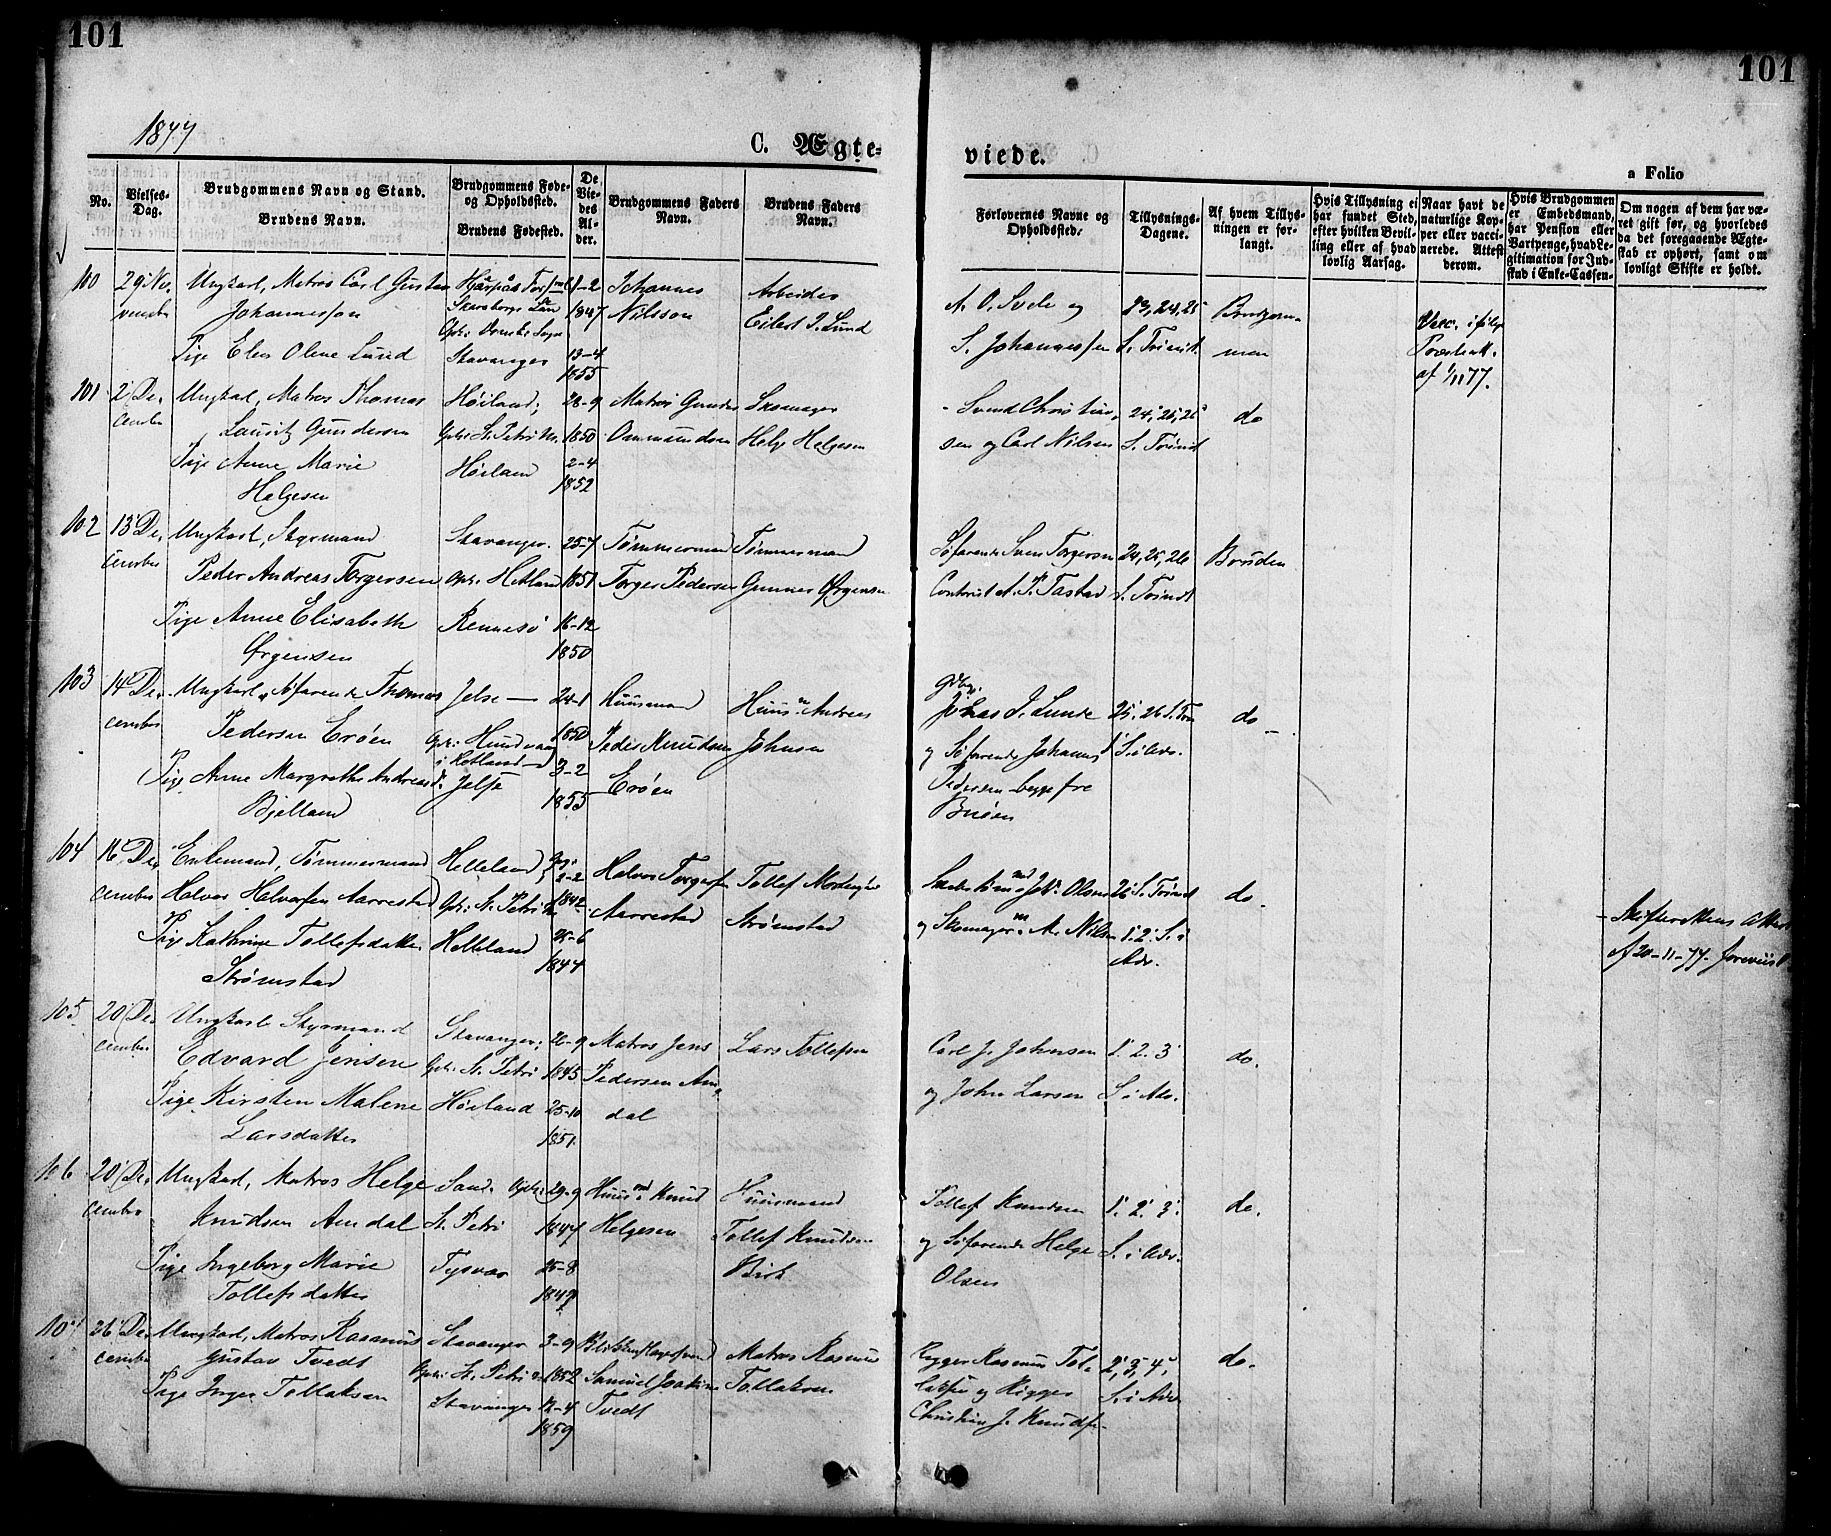 101
101
1877
C. Ægte-
viede.
a Folio
No.
Vielses-
Dag.
Brudgommens Navn og Stand.
Brudens Navn.
Brudgommens Føde-
og Opholdssted.
Brudens Fødested.
De
Vie-
des
Al-
der.
Brudgommens Faders
Navn.
Brudens Faders
Navn.
Forlovernes Navne og
Opholdssted.
Tillysnings-
Dagene.
Af hvem Tillys-
ningen er for-
langt.
Hvis Tillysning ei
har fundet Sted,
efter hvilken Bevil-
ling eller af hvad
lovlig Aarsag.
Naar havt de
naturlige Kop-
per eller vacci-
nerede. Attest
derom.
Hvis Brudgommen
er Embedsmand,
har Pension eller
Vartpenge, hvad Le-
gitimation for Ind-
skud i Enke-Cassen.
Om nogen af dem har væ-
ret gift før, og hvorledes
da det foregaaende Ægte-
skab er ophørt, samt om
lovligt Skifte er holdt.
100 29 No- Ungkarl, Matros Carl Gustav 1-2 Johannes Arbeider
vember Johannesson 1847 Nilsson Eilert J. Lund
Pige Elen Olene Lund Stavanger 13-4
1855
A. O. Svele og 23, 24, 25 Brudgom-
S. Johannessen S. Trinit. men
Vacc. ifølge
af 1/11 77.
101 2 De- Ungkarl, Matros Thomas Høiland; 28-9 Matros Gunder Skomager
cember Lauritz Gundersen Oph: St. Petri 1850 Ommundsen Helge Helgesen
Pige Anne Marie Høiland 2-4
Helgesen 1852
Svend Christian- 24, 25, 26 do
sen og Carl Nilsen S. Trinit
102 13 De- Ungkarl, Styrmand Stavanger. 25-7 Tømmermand Tømmermand
cember Peder Andreas Torgersen Oph: Hetland 1851 Torger Pedersen Gunner Ørgensen
Pige Anne Elisabeth Rennesø 16-12
Ørgensen 1850
Søfarende Sven Torgersen 24, 25, 26 Bruden
A. P. Tastad S. Trinit
103 14 De- Ungkarl, Søfarende Thomas Jelse 24-1 Huusmand Huusm. Andreas
cember Pedersen Erøen Oph: Hundvaag 1850 Peder Knudsen Johnsen
i Hetland
Pige Anne Margrethe Andreasd. Jelse 3-2 Erøen
Bjelland 1855
Johas J. Lunde 25, 26 S. Trin do
og Søfarende Johannes 1 S. i Adv.
Pedersen begge fra
Buøen
104 16 De- Enkemand, Tømmermand Helleland; 2-2 Halvor Torgersen Tollef
cember Halvor Halvorsen Aarrestad Oph: St. Petri 1842 Aarrestad Strømstad
Pige Kathrine Tollefsdatter Helleland 25-6
Strømstad 1844
Olsen 26 S. Trinit do.
og Skomagerm. A. Nilsen 1. 2. S. i
Adv.
Skifterettens Attest
af 20-11-77 foreviist
105 20 De- Ungkarl Styrmand Stavanger; 2-9 Matros Jens Lars Tollefsen
cember Edvard Jensen Oph: St. Petri 1845 Pedersen Am-
Pige Kirsten Malene Høiland 25-10 dal
Larsdatter 1851
Carl J. Johnsen 1. 2. 3 do.
og John Larsen S i Adv.
106 20 De- Ungkarl, Matros Helge Sand. Oph: 29-9 Huusmd Knud Huusmand
cember Knudsen Amdal St. Petri 1847 Helgesen Tollef Knudsen
Pige Ingeborg Marie Tysvær 25-8 Birk
Tollefsdatter 1847
Tollef Knudsen 1. 2. 3. do.
og Søfarende Helge S. i Adv.
Olsen
107 26 De- Ungkarl, Matros Rasmus Stavanger 3-9 Matros Rasmus
cember Gustav Tvedt Oph: St. Petri 1852 Samuel Joakim Tollaksen
Pige Inger Tollaksen Stavanger 12-4 Tvedt
1859
Rigger Rasmus Tol- 2, 3, 4, do.
laksen og Rigger S. i Adv
Christian J. Knudsen